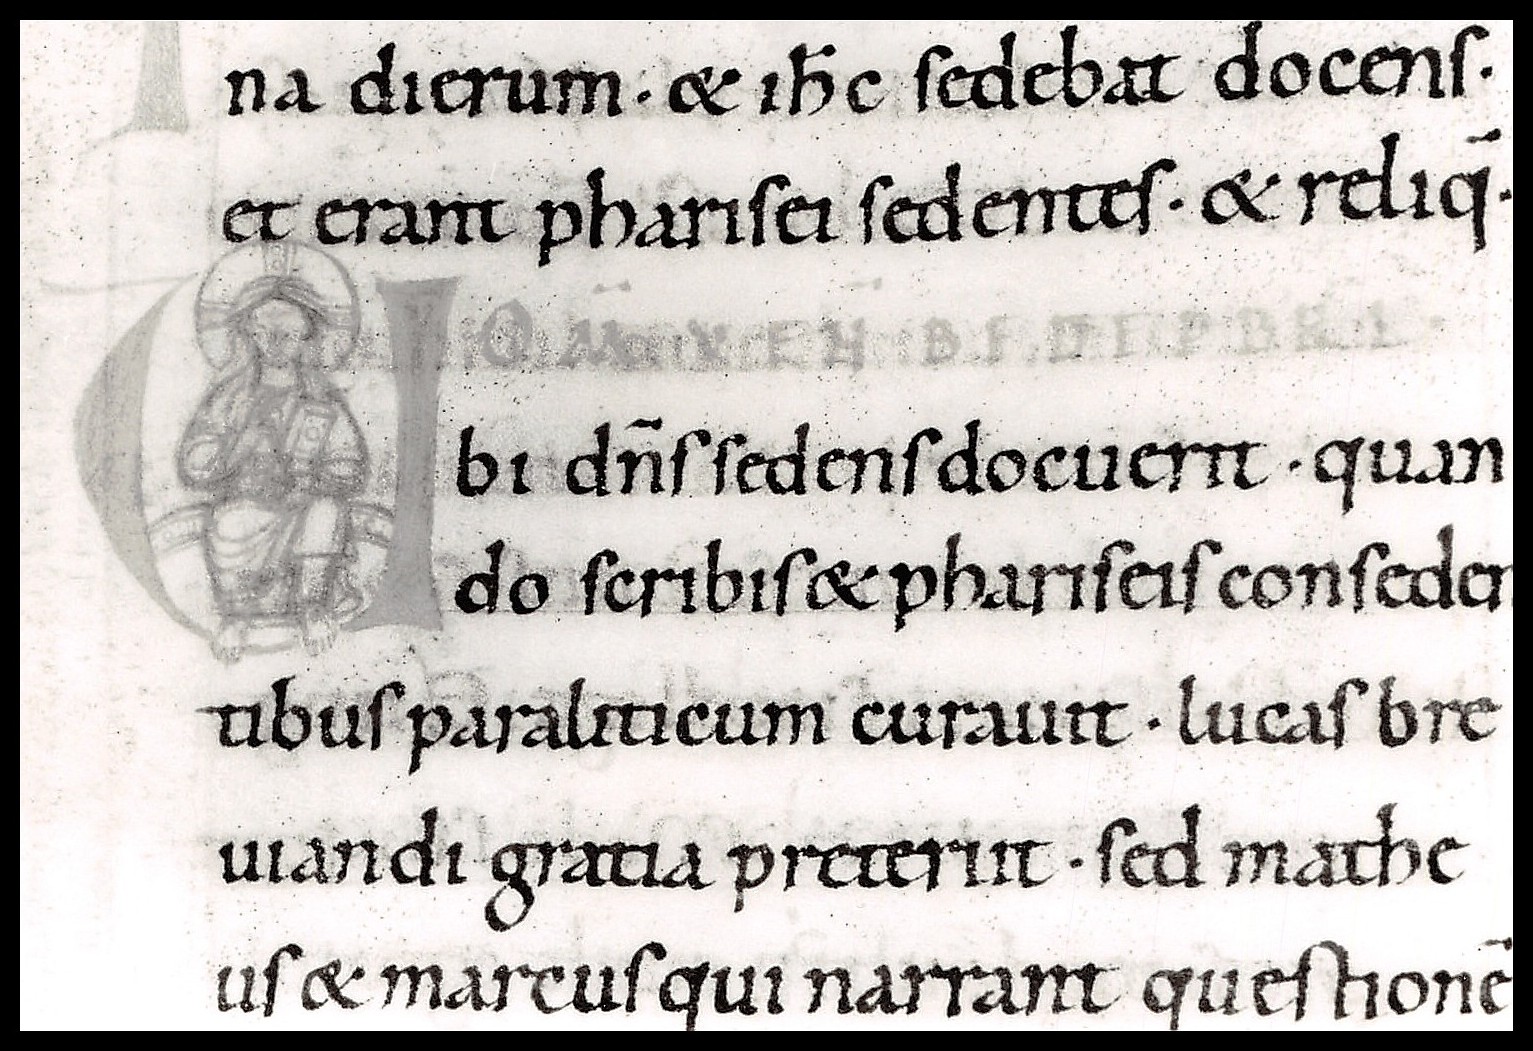 na dierum · & ih̅c sedebat docens ·
et erant pharisei sedentes · & reliq̅ ·
OM̅ VEN̅ BEDE PBRI ·
Ubi dn̅s sedens docuerit · quan
do scribis & phariseis conseden
tibus paraliticum curauit · lucas bre
uiandi gratia preteriit · sed mathe
us & marcus qui narrant questione̅